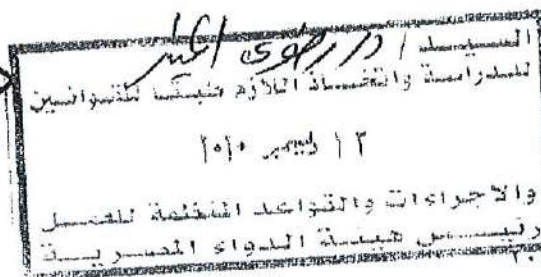 السيد / د/ رضوى
للدراسة واتخاذ اللازم طبقًا للقوانين
١٢ ديسمبر
والاجراءات والقواعد المنظمة للعمل
رئيس هيئة الدواء المصرية